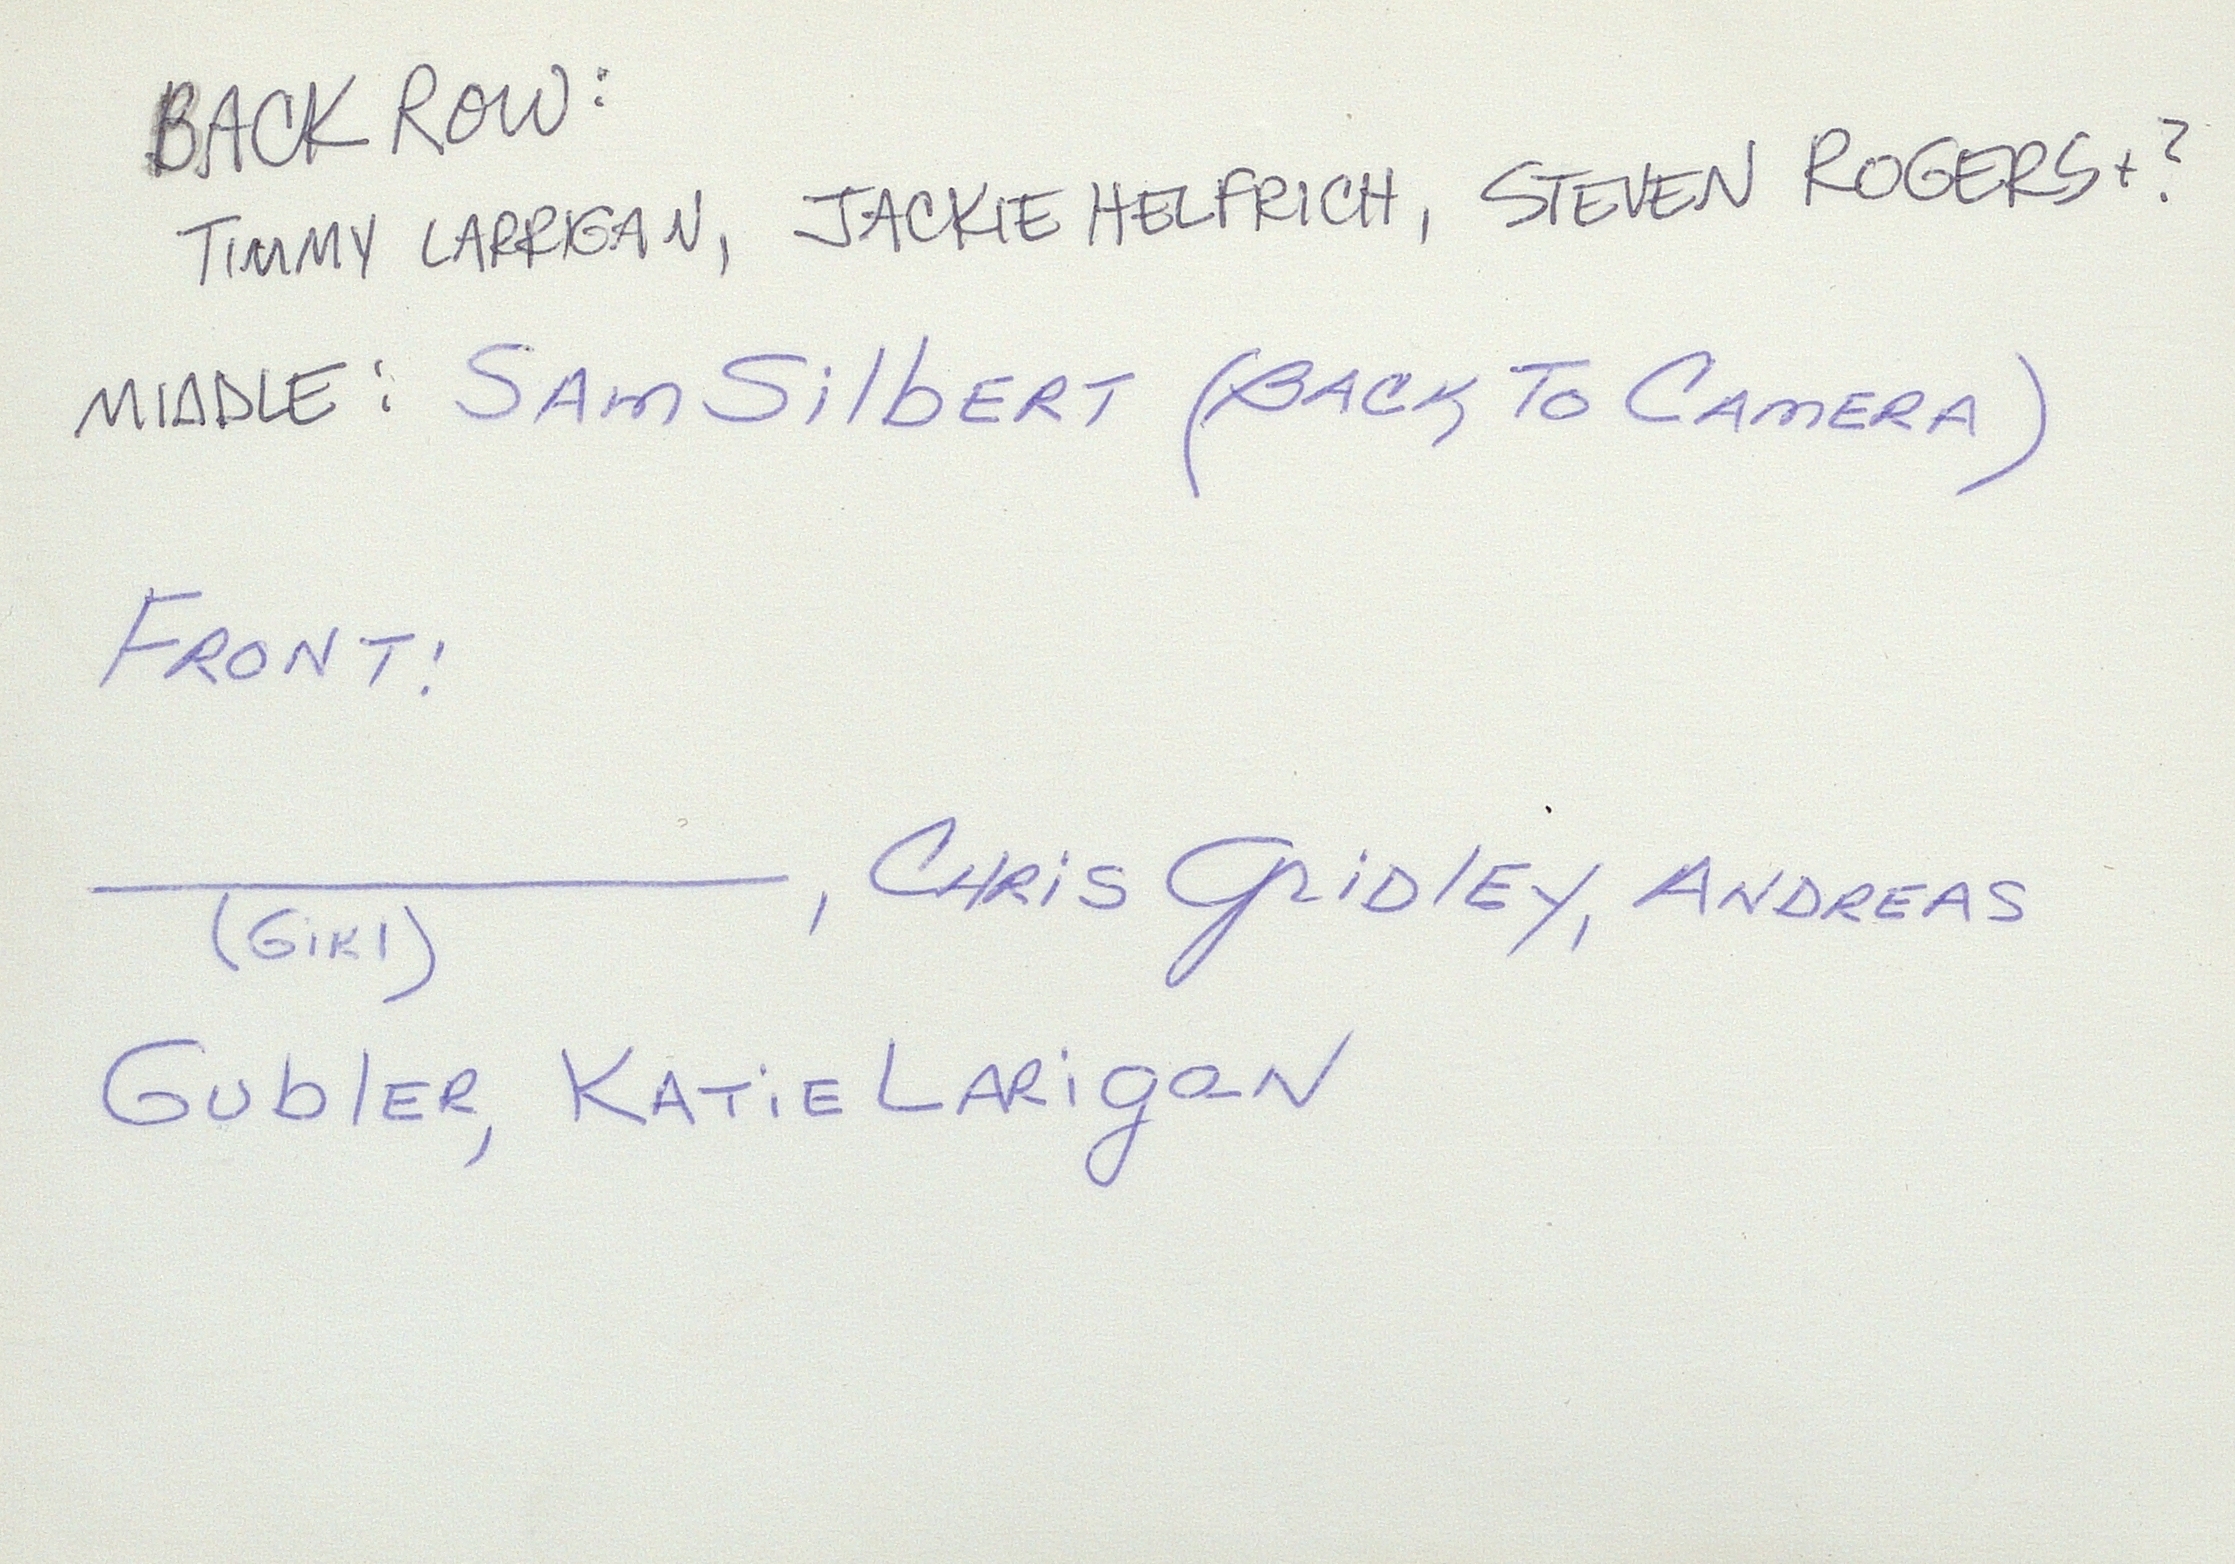 BACK ROW:
TIMMY LARRIGAN, JACKIE HELFRICH, STEVEN ROGERS + ?
MIDDLE: SAM SilbERT (BACK TO CAMERA)
FRONT:
____________, CHRiS GRiDlEY, ANDREAS
(GIRl)
GUblER, KATiE LARigaN